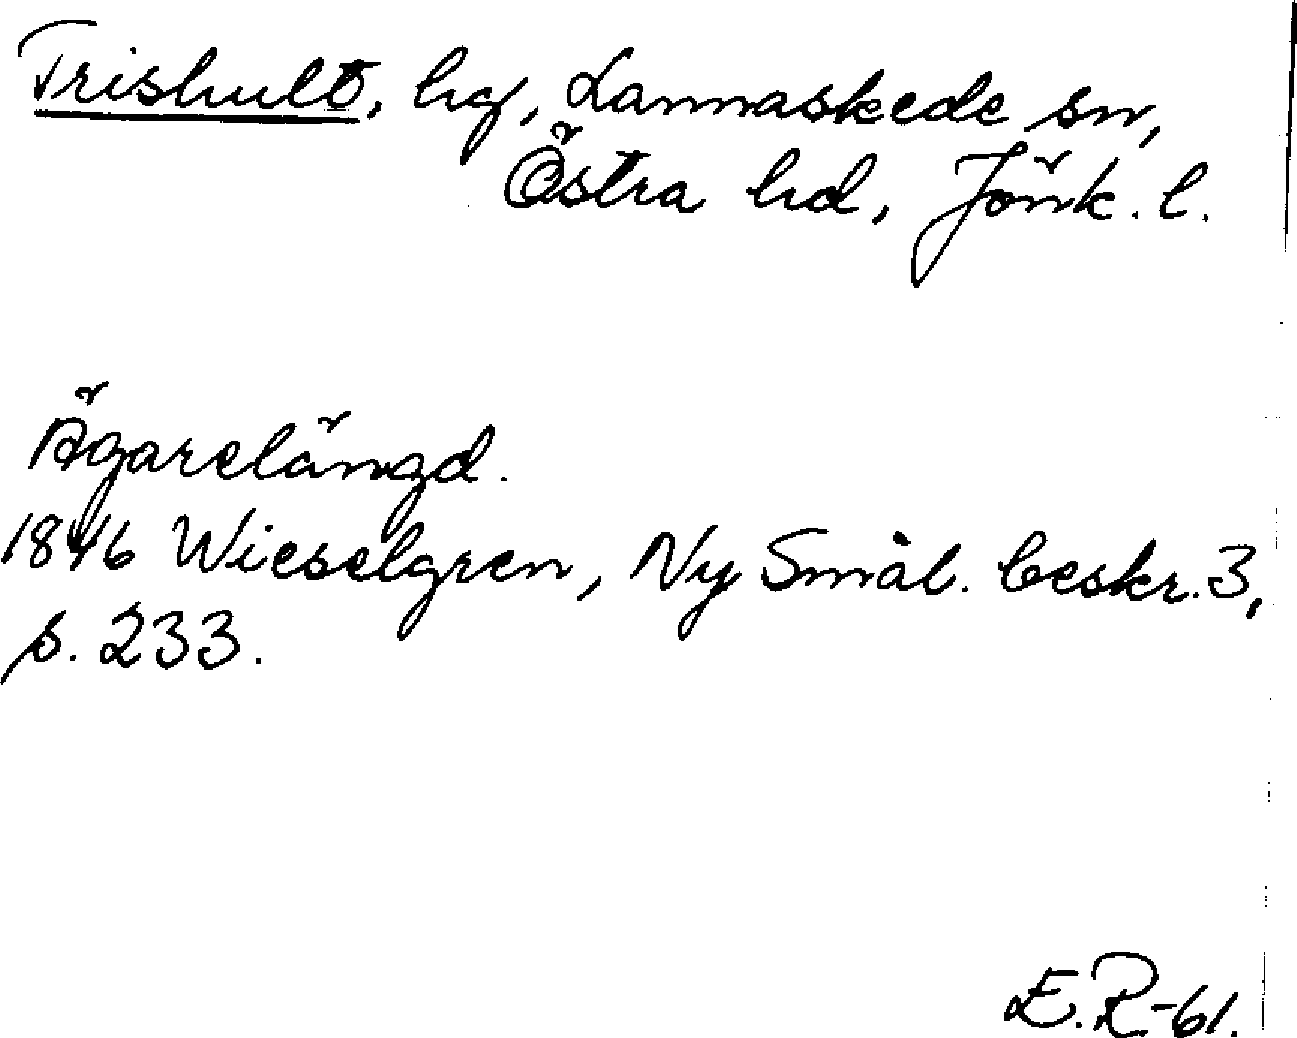 Trishult, hg, Lannaskede sn,
Östra hd, Jönk. l.
Ägarelängd.
1846 Wieselgren, Ny Smål. beskr. 3,
s. 233.
E.R-61.